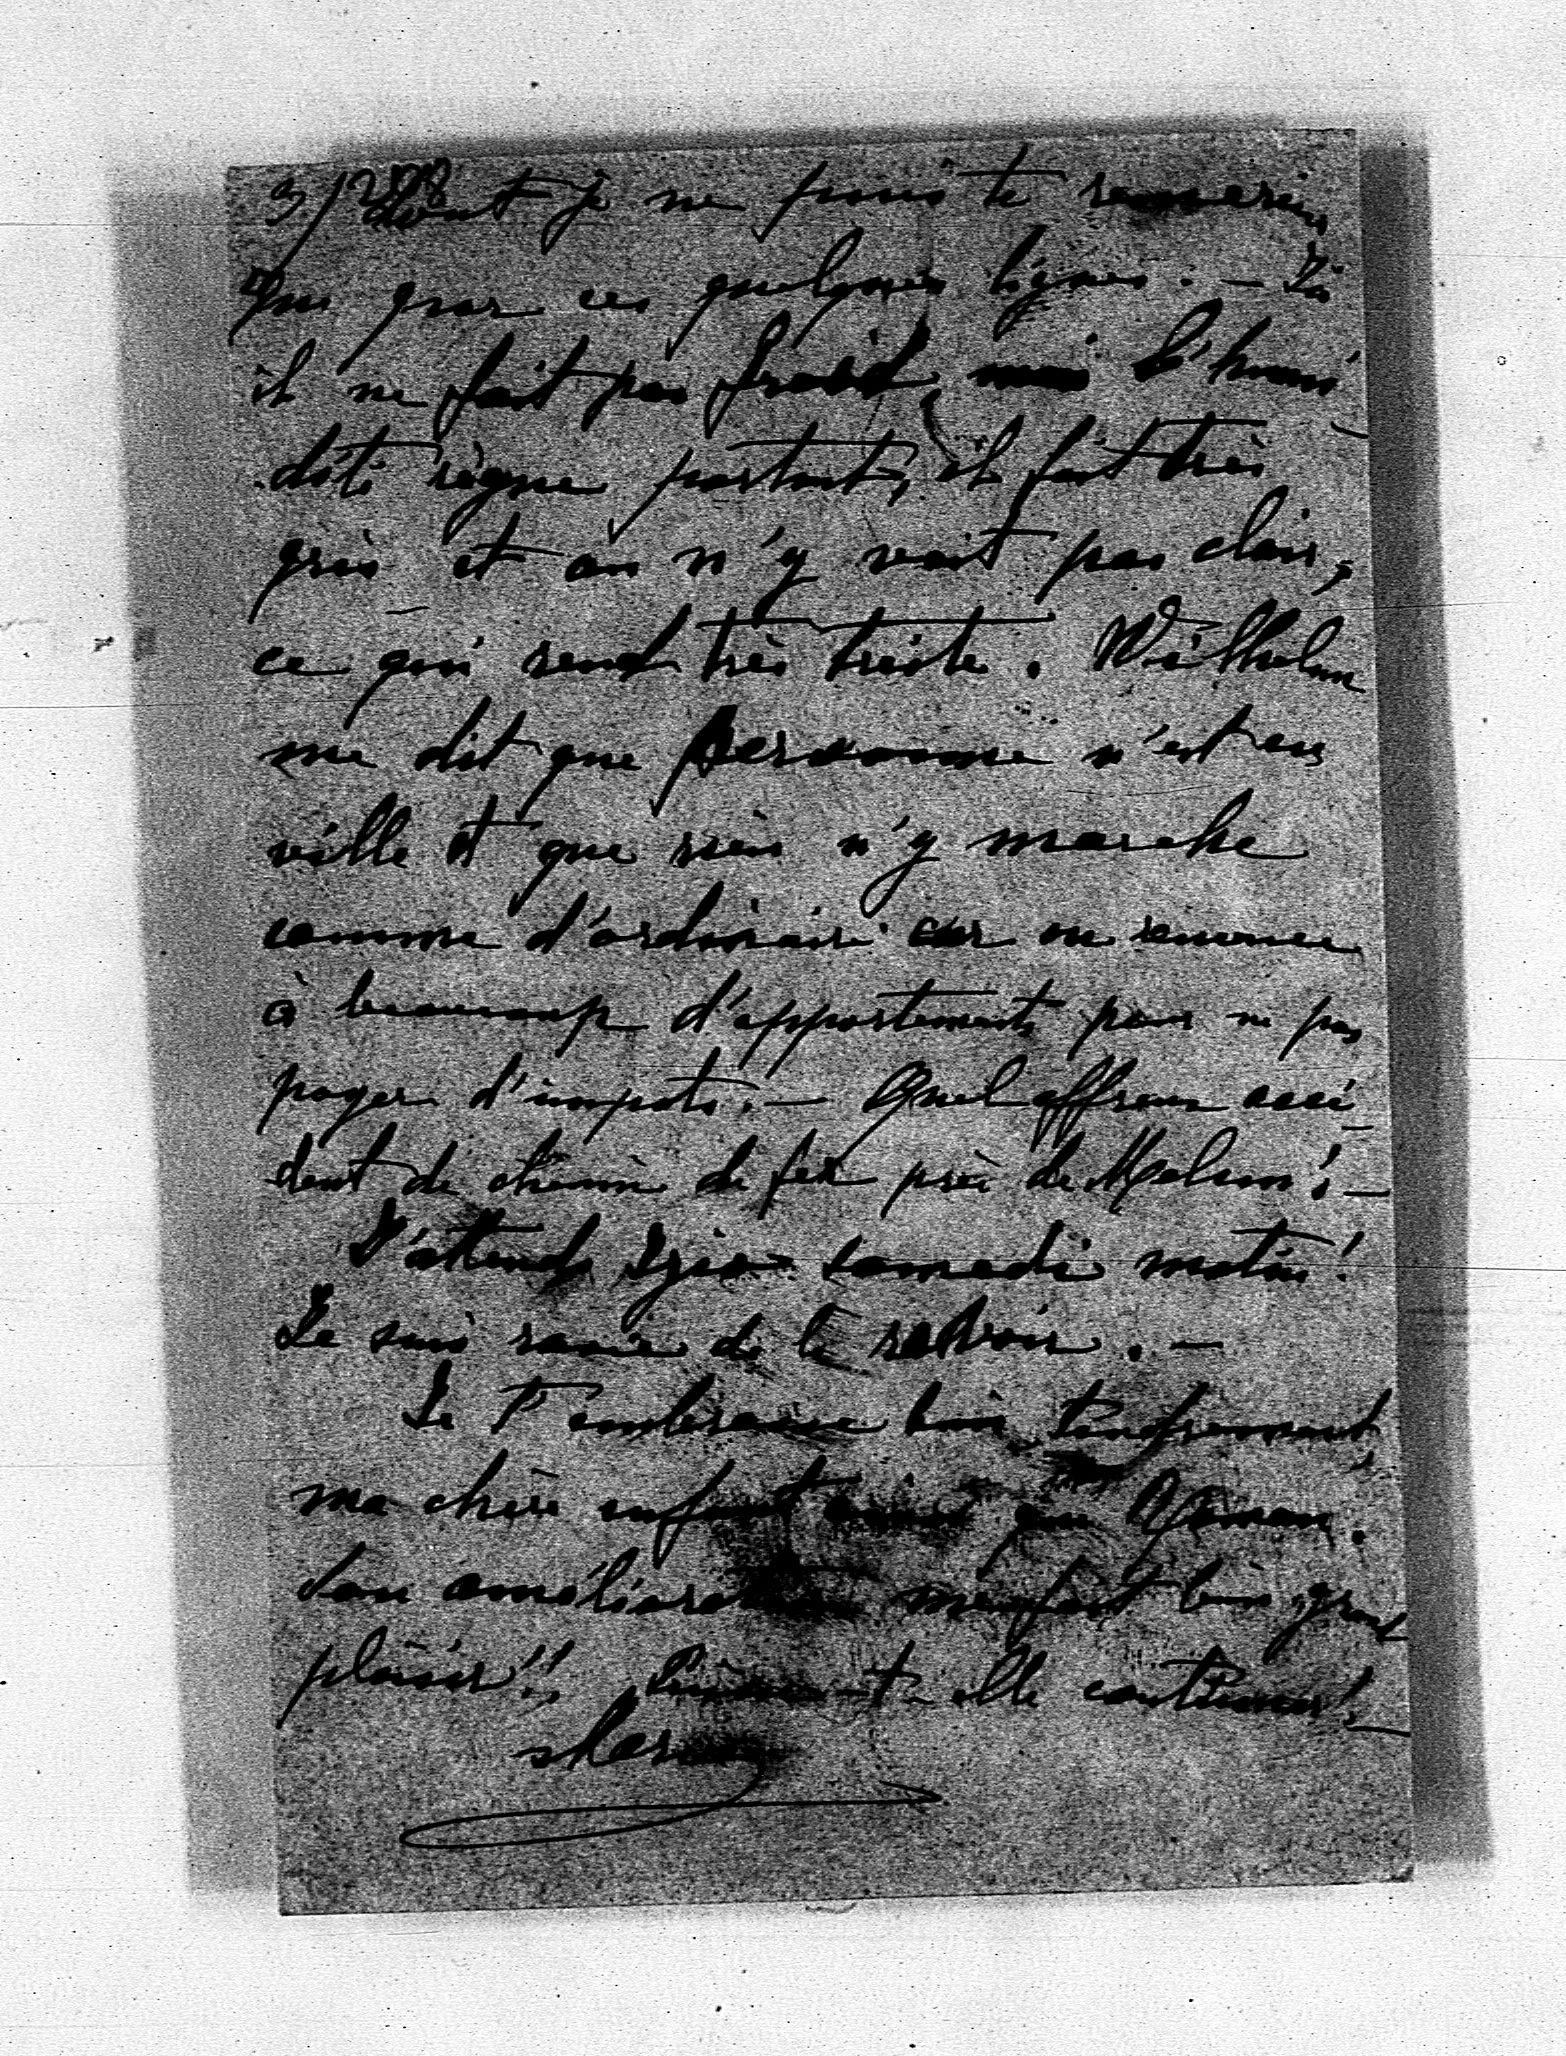 3/288
dont je ne puis te remercier
que par ces quelques lignes. — Ici
il ne fait pas froid, mais l'humi-
dité règne partout, il fait très
gris et on n'y voit pas clair,
ce qui rend très triste. Wilhelm
me dit que personne n'est en
ville et que rien n'y marche
comme d'ordinaire car on renonce
à beaucoup d'appartements pour ne pas
payer d'impots. — Quel affreux acci-
dent de chemin de fer près de Melun! —
J'attends samedi matin!
Je suis ravie de le revoir. —
Je t'embrasse bien tendrement
ma chère enfant ainsi que
Son amélioration me fait bien grand
plaisir!! Puisse-t-elle continuer! —